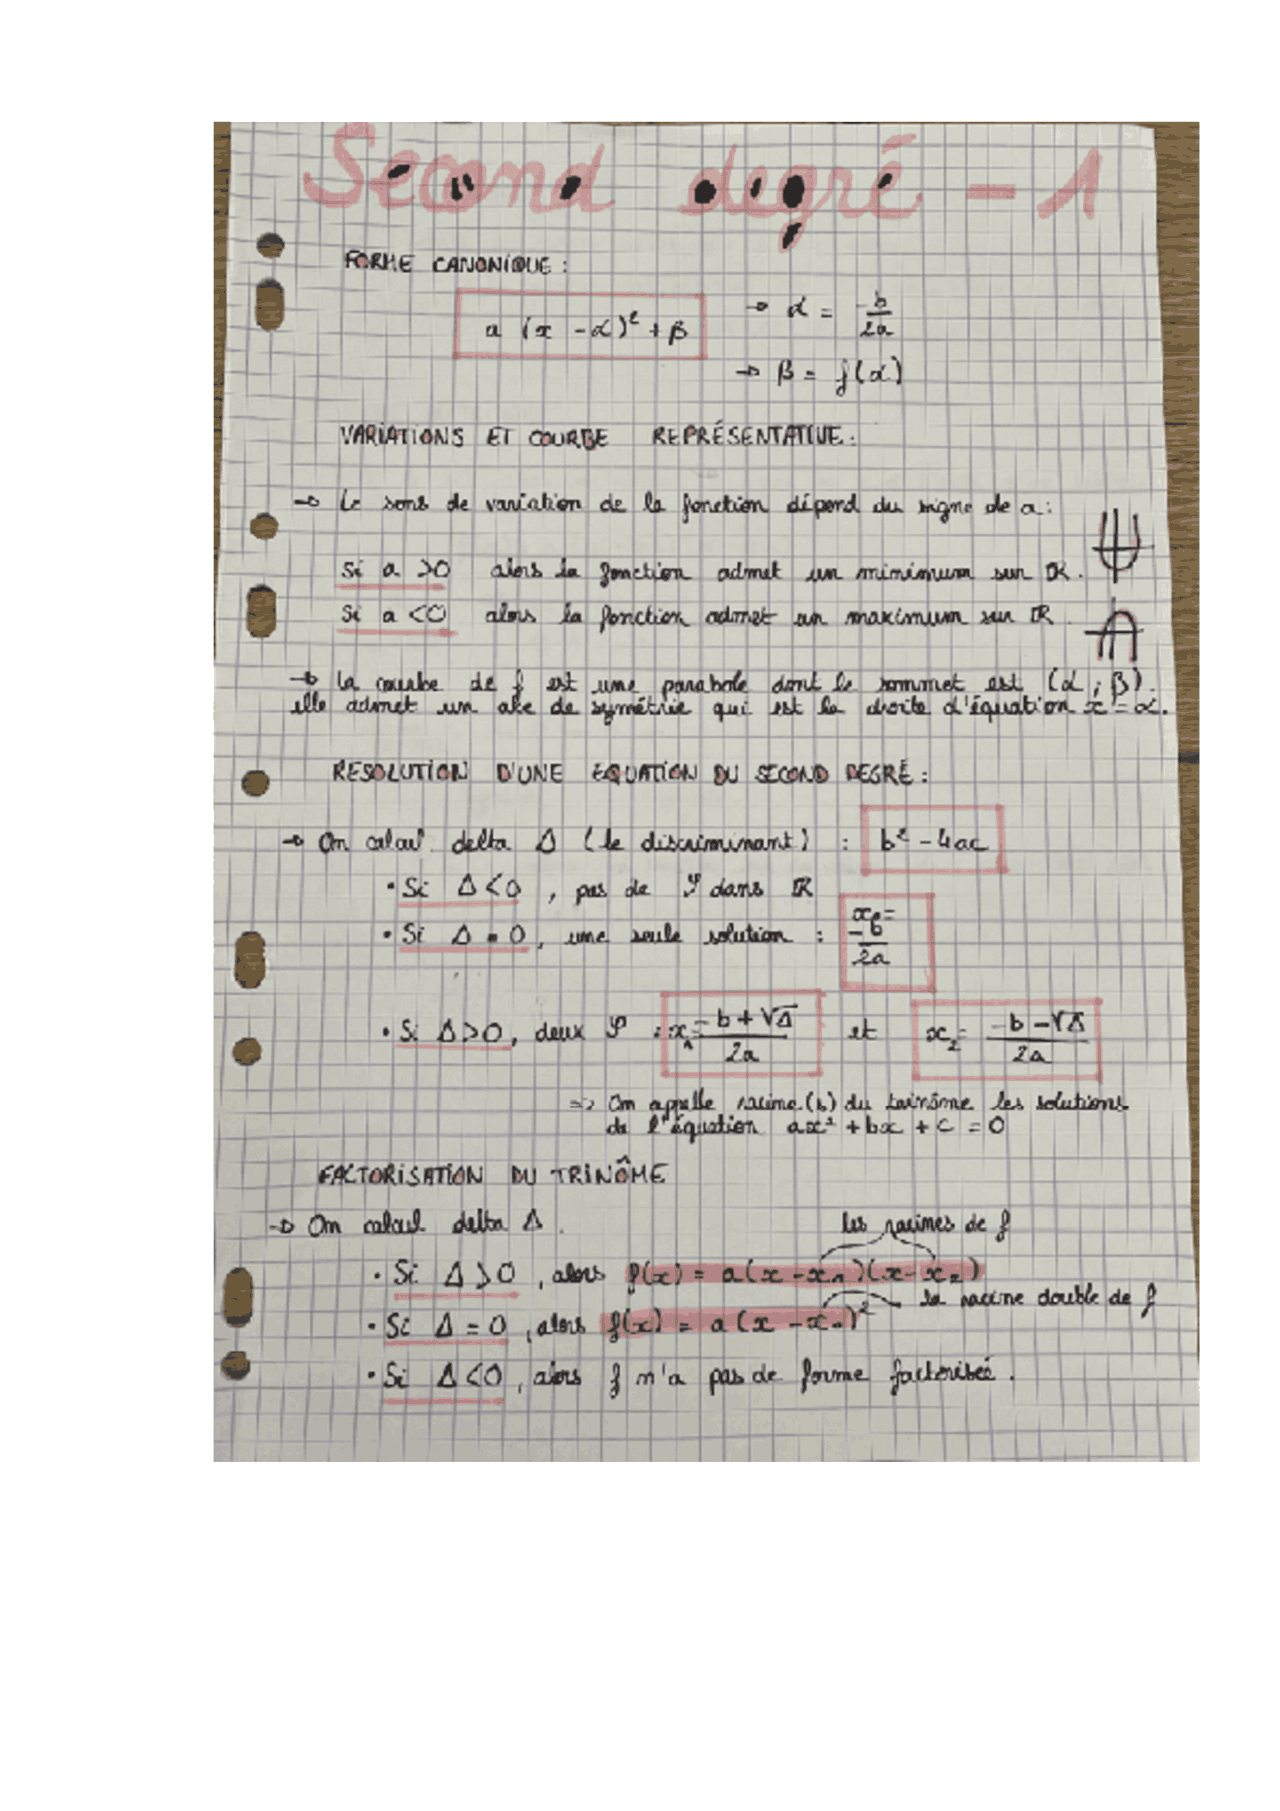 Second degré - 1
FORME CANONIQUE :
a (x - α)² + β
→ α = -b/2a
→ β = f(α)
VARIATIONS ET COURBE REPRÉSENTATIVE :
→ Le sens de variation de la fonction dépend du signe de a :
Si a > 0 alors la fonction admet un minimum sur ℝ.
Si a < 0 alors la fonction admet un maximum sur ℝ.
→ La courbe de f est une parabole dont le sommet est (α ; β).
elle admet un axe de symétrie qui est la droite d'équation x = α.
RESOLUTION D'UNE EQUATION DU SECOND DEGRÉ :
→ On calcul delta Δ (le discriminant) : b² - 4ac
• Si Δ < 0, pas de 𝒮 dans ℝ
• Si Δ = 0, une seule solution : x₀ = -b/2a
• Si Δ > 0, deux 𝒮 : x₁ = -b + √Δ/2a et x₂ = -b - √Δ/2a
=> On appelle racine(s) du trinôme les solutions
de l'équation ax² + bx + c = 0
FACTORISATION DU TRINÔME
→ On calcul delta Δ.
les racines de f
• Si Δ > 0, alors f(x) = a(x - x₁)(x - x₂)
la racine double de f
• Si Δ = 0, alors f(x) = a(x - x₀)²
• Si Δ < 0, alors f n'a pas de forme factorisée.